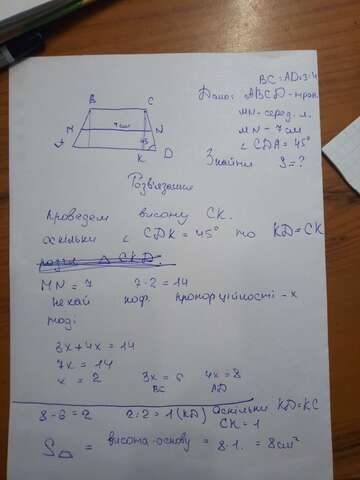 BC : AD = 3:4
Дано: ABCD - трап.
MN - серед. л.
MN - 7 см
∠ CDA = 45°
Знайти S = ?
B C
M 7 см N
A K D
45
Розв'язання
Проведем висоту CK.
оскільки ∠ CDK = 45° то KD = CK
розгл △ CKD.
MN = 7 7·2 = 14
Нехай коф. пропорційності - x
тоді:
3x + 4x = 14
7x = 14
x = 2 3x = 6 4x = 8
BC AD
8 - 6 = 2 2:2 = 1 (KD) Оскільки KD = KC
CK = 1
S△ = висота·основу = 8·1. = 8 см²